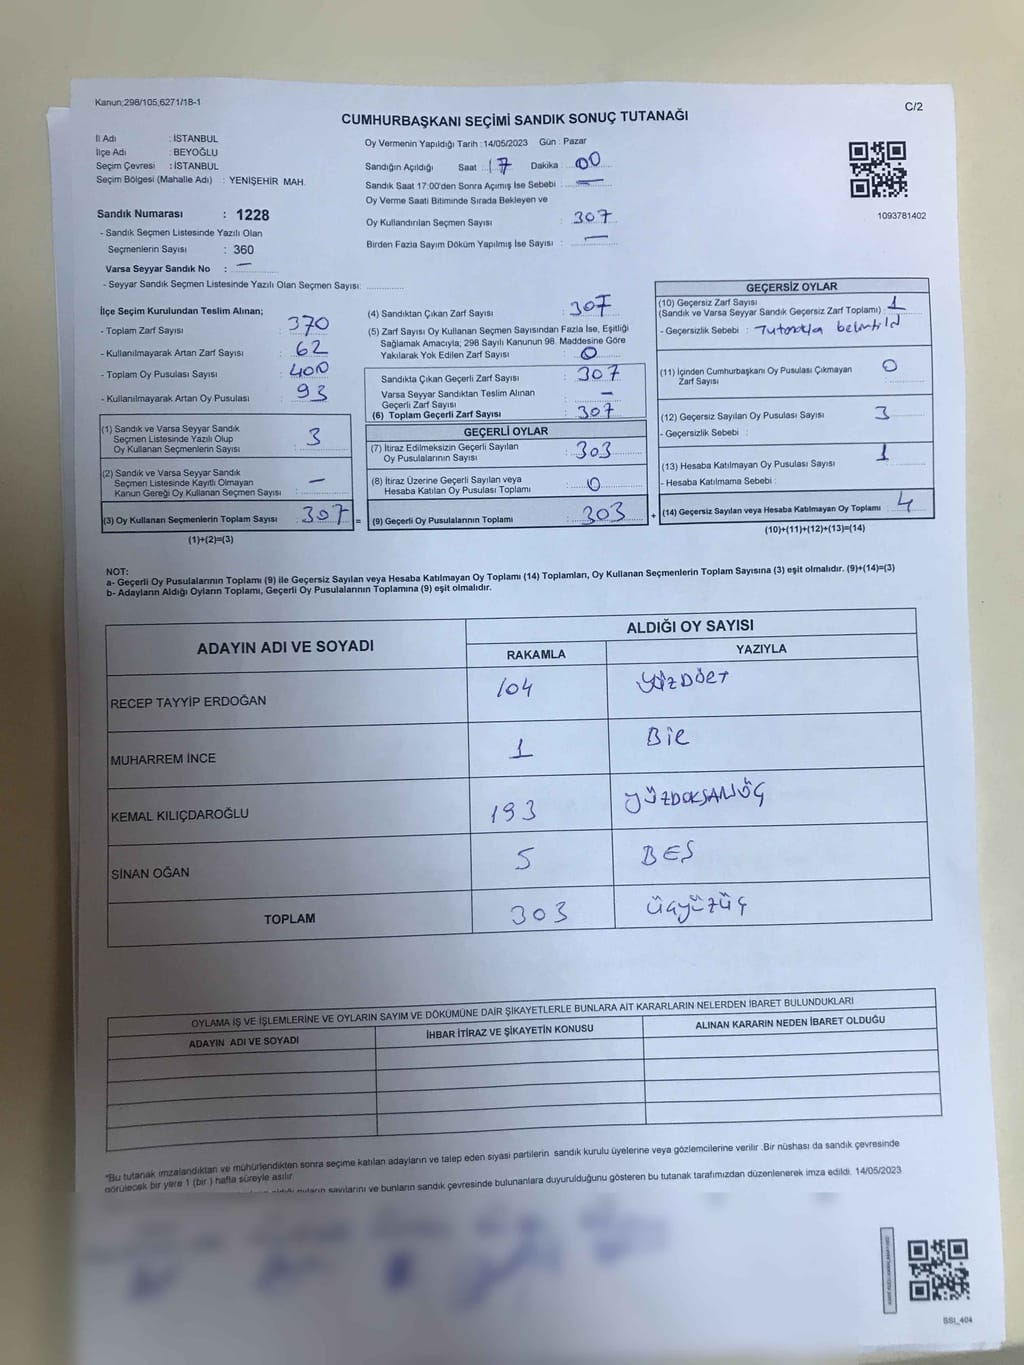 Kanun;298/105;6271/18-1
C/2
CUMHURBAŞKANI SEÇİMİ SANDIK SONUÇ TUTANAĞI
İl Adı : İSTANBUL
İlçe Adı : BEYOĞLU
Seçim Çevresi : İSTANBUL
Seçim Bölgesi (Mahalle Adı) : YENİŞEHİR MAH.
Sandık Numarası : 1228
- Sandık Seçmen Listesinde Yazılı Olan
Seçmenlerin Sayısı : 360
Varsa Seyyar Sandık No : —
- Seyyar Sandık Seçmen Listesinde Yazılı Olan Seçmen Sayısı:
Oy Vermenin Yapıldığı Tarih :14/05/2023 Gün : Pazar
Sandığın Açıldığı Saat : 17 Dakika : 00
Sandık Saat 17:00'den Sonra Açımış İse Sebebi : —
Oy Verme Saati Bitiminde Sırada Bekleyen ve
Oy Kullandırılan Seçmen Sayısı : 307
Birden Fazla Sayım Döküm Yapılmış İse Sayısı : —
1093781402
İlçe Seçim Kurulundan Teslim Alınan;
- Toplam Zarf Sayısı : 370
- Kullanılmayarak Artan Zarf Sayısı : 62
- Toplam Oy Pusulası Sayısı : 400
- Kullanılmayarak Artan Oy Pusulası : 93
(1) Sandık ve Varsa Seyyar Sandık
Seçmen Listesinde Yazılı Olup
Oy Kullanan Seçmenlerin Sayısı : 3
(2) Sandık ve Varsa Seyyar Sandık
Seçmen Listesinde Kayıtlı Olmayan
Kanun Gereği Oy Kullanan Seçmen Sayısı : —
(3) Oy Kullanan Seçmenlerin Toplam Sayısı : 307 =
(1)+(2)=(3)
(4) Sandıktan Çıkan Zarf Sayısı : 307
(5) Zarf Sayısı Oy Kullanan Seçmen Sayısından Fazla İse, Eşitliği
Sağlamak Amacıyla; 298 Sayılı Kanunun 98. Maddesine Göre
Yakılarak Yok Edilen Zarf Sayısı : 0
Sandıkta Çıkan Geçerli Zarf Sayısı : 307
Varsa Seyyar Sandıktan Teslim Alınan
Geçerli Zarf Sayısı : —
(6) Toplam Geçerli Zarf Sayısı : 307
GEÇERLİ OYLAR
(7) İtiraz Edilmeksizin Geçerli Sayılan
Oy Pusulalarının Sayısı : 303
(8) İtiraz Üzerine Geçerli Sayılan veya
Hesaba Katılan Oy Pusulası Toplamı : 0
(9) Geçerli Oy Pusulalarının Toplamı : 303 +
GEÇERSİZ OYLAR
(10) Geçersiz Zarf Sayısı
(Sandık ve Varsa Seyyar Sandık Geçersiz Zarf Toplamı) : 1
- Geçersizlik Sebebi : Tutanakla belirtildi
(11) İçinden Cumhurbaşkanı Oy Pusulası Çıkmayan
Zarf Sayısı : 0
(12) Geçersiz Sayılan Oy Pusulası Sayısı : 3
- Geçersizlik Sebebi :
(13) Hesaba Katılmayan Oy Pusulası Sayısı : 1
- Hesaba Katılmama Sebebi :
(14) Geçersiz Sayılan veya Hesaba Katılmayan Oy Toplamı : 4
(10)+(11)+(12)+(13)=(14)
NOT:
a- Geçerli Oy Pusulalarının Toplamı (9) ile Geçersiz Sayılan veya Hesaba Katılmayan Oy Toplamı (14) Toplamları, Oy Kullanan Seçmenlerin Toplam Sayısına (3) eşit olmalıdır. (9)+(14)=(3)
b- Adayların Aldığı Oyların Toplamı, Geçerli Oy Pusulalarının Toplamına (9) eşit olmalıdır.
ADAYIN ADI VE SOYADI
ALDIĞI OY SAYISI
RAKAMLA YAZIYLA
RECEP TAYYİP ERDOĞAN 104 YÜZDÖRT
MUHARREM İNCE 1 BİR
KEMAL KILIÇDAROĞLU 193 YÜZDOKSANÜÇ
SİNAN OĞAN 5 BEŞ
TOPLAM 303 üçyüzüç
OYLAMA İŞ VE İŞLEMLERİNE VE OYLARIN SAYIM VE DÖKÜMÜNE DAİR ŞİKAYETLERLE BUNLARA AİT KARARLARIN NELERDEN İBARET BULUNDUKLARI
ADAYIN ADI VE SOYADI İHBAR İTİRAZ VE ŞİKAYETİN KONUSU ALINAN KARARIN NEDEN İBARET OLDUĞU
"Bu tutanak imzalandıktan ve mühürlendikten sonra seçime katılan adayların ve talep eden siyasi partilerin sandık kurulu üyelerine veya gözlemcilerine verilir .Bir nüshası da sandık çevresinde
görülecek bir yere 1 (bir ) hafta süreyle asılır.
sayılarını ve bunların sandık çevresinde bulunanlara duyurulduğunu gösteren bu tutanak tarafımızdan düzenlenerek imza edildi. 14/05/2023
SSI_404